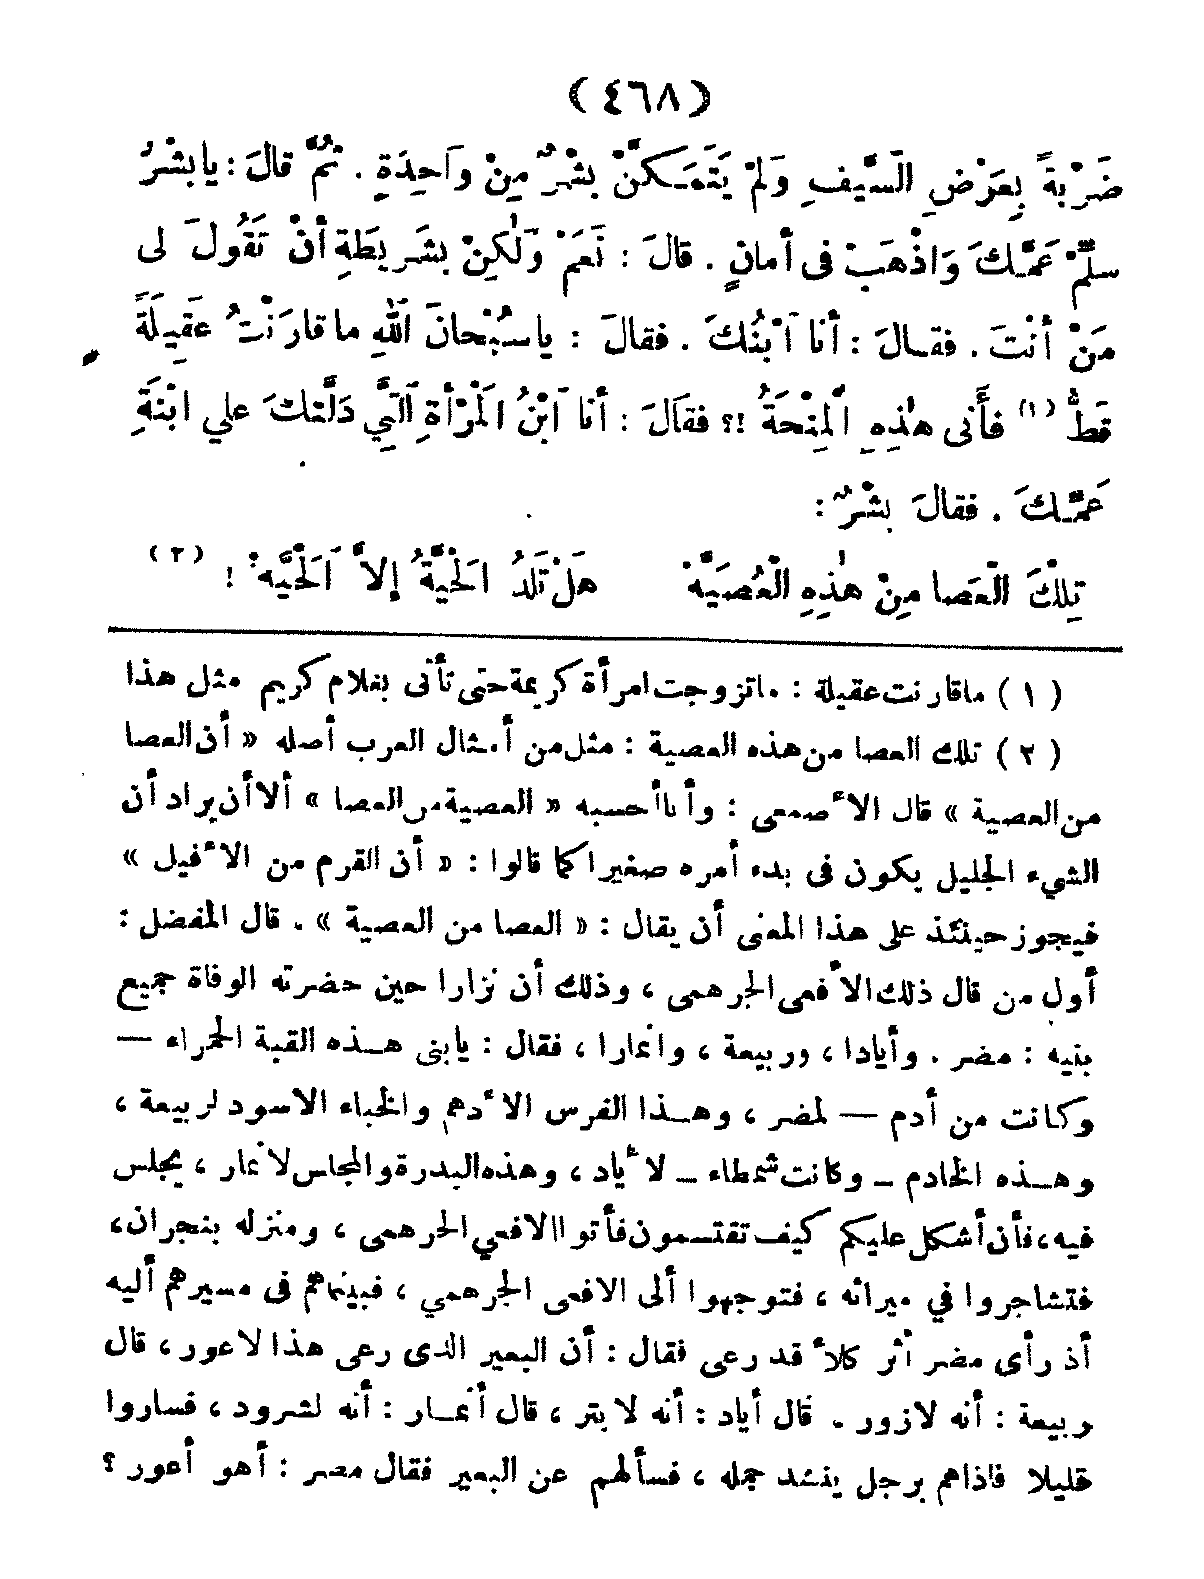 (٤٦٨)
ضَرْبَةً بِعَرْضِ الَسَّيفِ وَلَمْ يَتَمَـكنَّ بشْرٌ مِنْ وَاَحِدَةٍ . ثُمَّ قالَ : يا بشْرُ
سلِّمْ عَمَّـكَ وَاذْهَبْ فى أمانٍ . قالَ : نَعَمْ وَلٰكِنْ بشَريطَةِ أنْ تَقُولَ لى
مَنْ أنْتَ . فقـالَ : أنا اَبْنُكَ . فقالَ : يا سُبْحانَ اَللهِ ما قارَنْتُ عَقِيلَةً
قَطُّ (١) فأَنى هٰذِهِ اَلْمِنْحَةُ !؟ فقَالَ : أنا اَبْنُ الَمْرْأةِ اَلتَّيِ دَلَّتكَ علي ابْنَةِ
عَمَّـكَ . فقالَ بشْرٌ :
تِلْكَ الْعَصا مِنْ هٰذِهِ الْعُصَيَّهْ هَلْ تَلَدُ الَحْيَّةُ إلاَّ اَلَحْيَّهْ ! (٢)
(١) ما قارنت عقيلة : ما تزوجت امرأة كريمة حتى تأتى بغلام كريم مثل هذا
(٢) تلك العصا من هذه العصية : مثل من أمثال العرب أصله « أن العصا
من العصية » قال الأصمعى : وأنا أحسبه « العصية من العصا » ألا أن يراد أن
الشيء الجليل يكون فى بدء أمره صغيرا كما قالوا : « أن القرم من الأفيل »
فيجوز حينئذ على هذا المعنى أن يقال : « العصا من العصية » . قال المفضل :
أول من قال ذلك الأفعى الجرهمى ، وذلك أن نزارا حين حضرته الوفاة جميع
بنيه : مضر . وأيادا ، وربيعة ، وانمارا ، فقال : يابنى هـذه القبة الحمراء —
وكانت من أدم — لمضر ، وهـذا الفرس الأدهم والخباء الاسود لربيعة ،
وهـذه الخادم — وكانت شمطاء — لأياد ، وهذه البدرة والمجلس لانمار ، يجلس
فيه ، فأن أشكل عليكم كيف تقتسمون فأتوا الافعي الجرهمى ، ومنزله بنجران ،
فتشاجروا في ميراثه ، فتوجهوا ألى الافعى الجرهمي ، فبينماهم فى مسيرهم أليه
أذ رأى مضر أثر كلأ قد رعى فقال : أن البعير الذى رعى هذا لاعور ، قال
ربيعة : أنه لازور . قال أياد : أنه لابتر ، قال أنمـار : أنه لشرود ، فساروا
قليلا فاذاهم برجل ينشد جمله ، فسألهم عن البعير فقال مضر : أهو أعور ؟